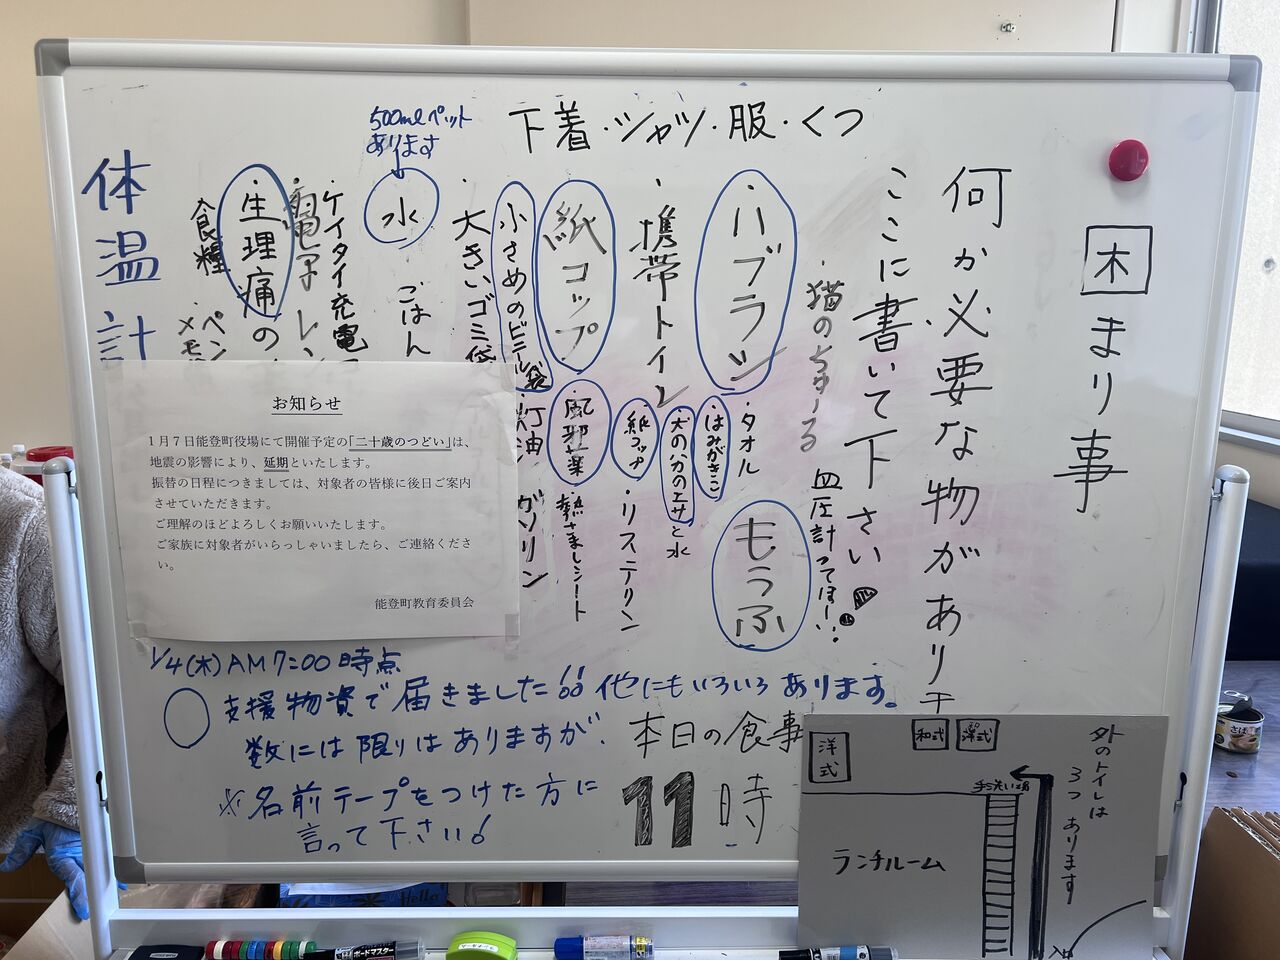 下着・シャツ・服・くつ
木まり事
何か必要な物があり
ここに書いて下さい
・猫のちゅ〜る
血圧計ってほしい
・ハブラシ
・タオル
もうふ
・はみがきこ
・携帯トイレ
・犬のハカのエサと水
・紙コップ
・リステリン
・紙コップ
・風邪薬
・熱さましシート
・小さめのビニール袋
・大きいゴミ袋
灯油
ガソリン
500mlペット
あります
水
ごはん
・ケイタイ充電
・電子レン
・生理痛の
・食糧
・ペン
メモ
体温計
お知らせ
1月7日能登町役場にて開催予定の「二十歳のつどい」は、
地震の影響により、延期といたします。
振替の日程につきましては、対象者の皆様に後日ご案内
させていただきます。
ご理解のほどよろしくお願いいたします。
ご家族に対象者がいらっしゃいましたら、ご連絡くださ
い。
能登町教育委員会
1/4(木)AM7:00時点
○支援物資で届きました!!他にもいろいろあります。
数には限りはありますが、
※名前テープをつけた方に
言って下さい!
本日の食事
11時
外のトイレは
3つあります
洋式
和式
洋式
手洗い場
ランチルーム
入口
Hello
ボードマスター